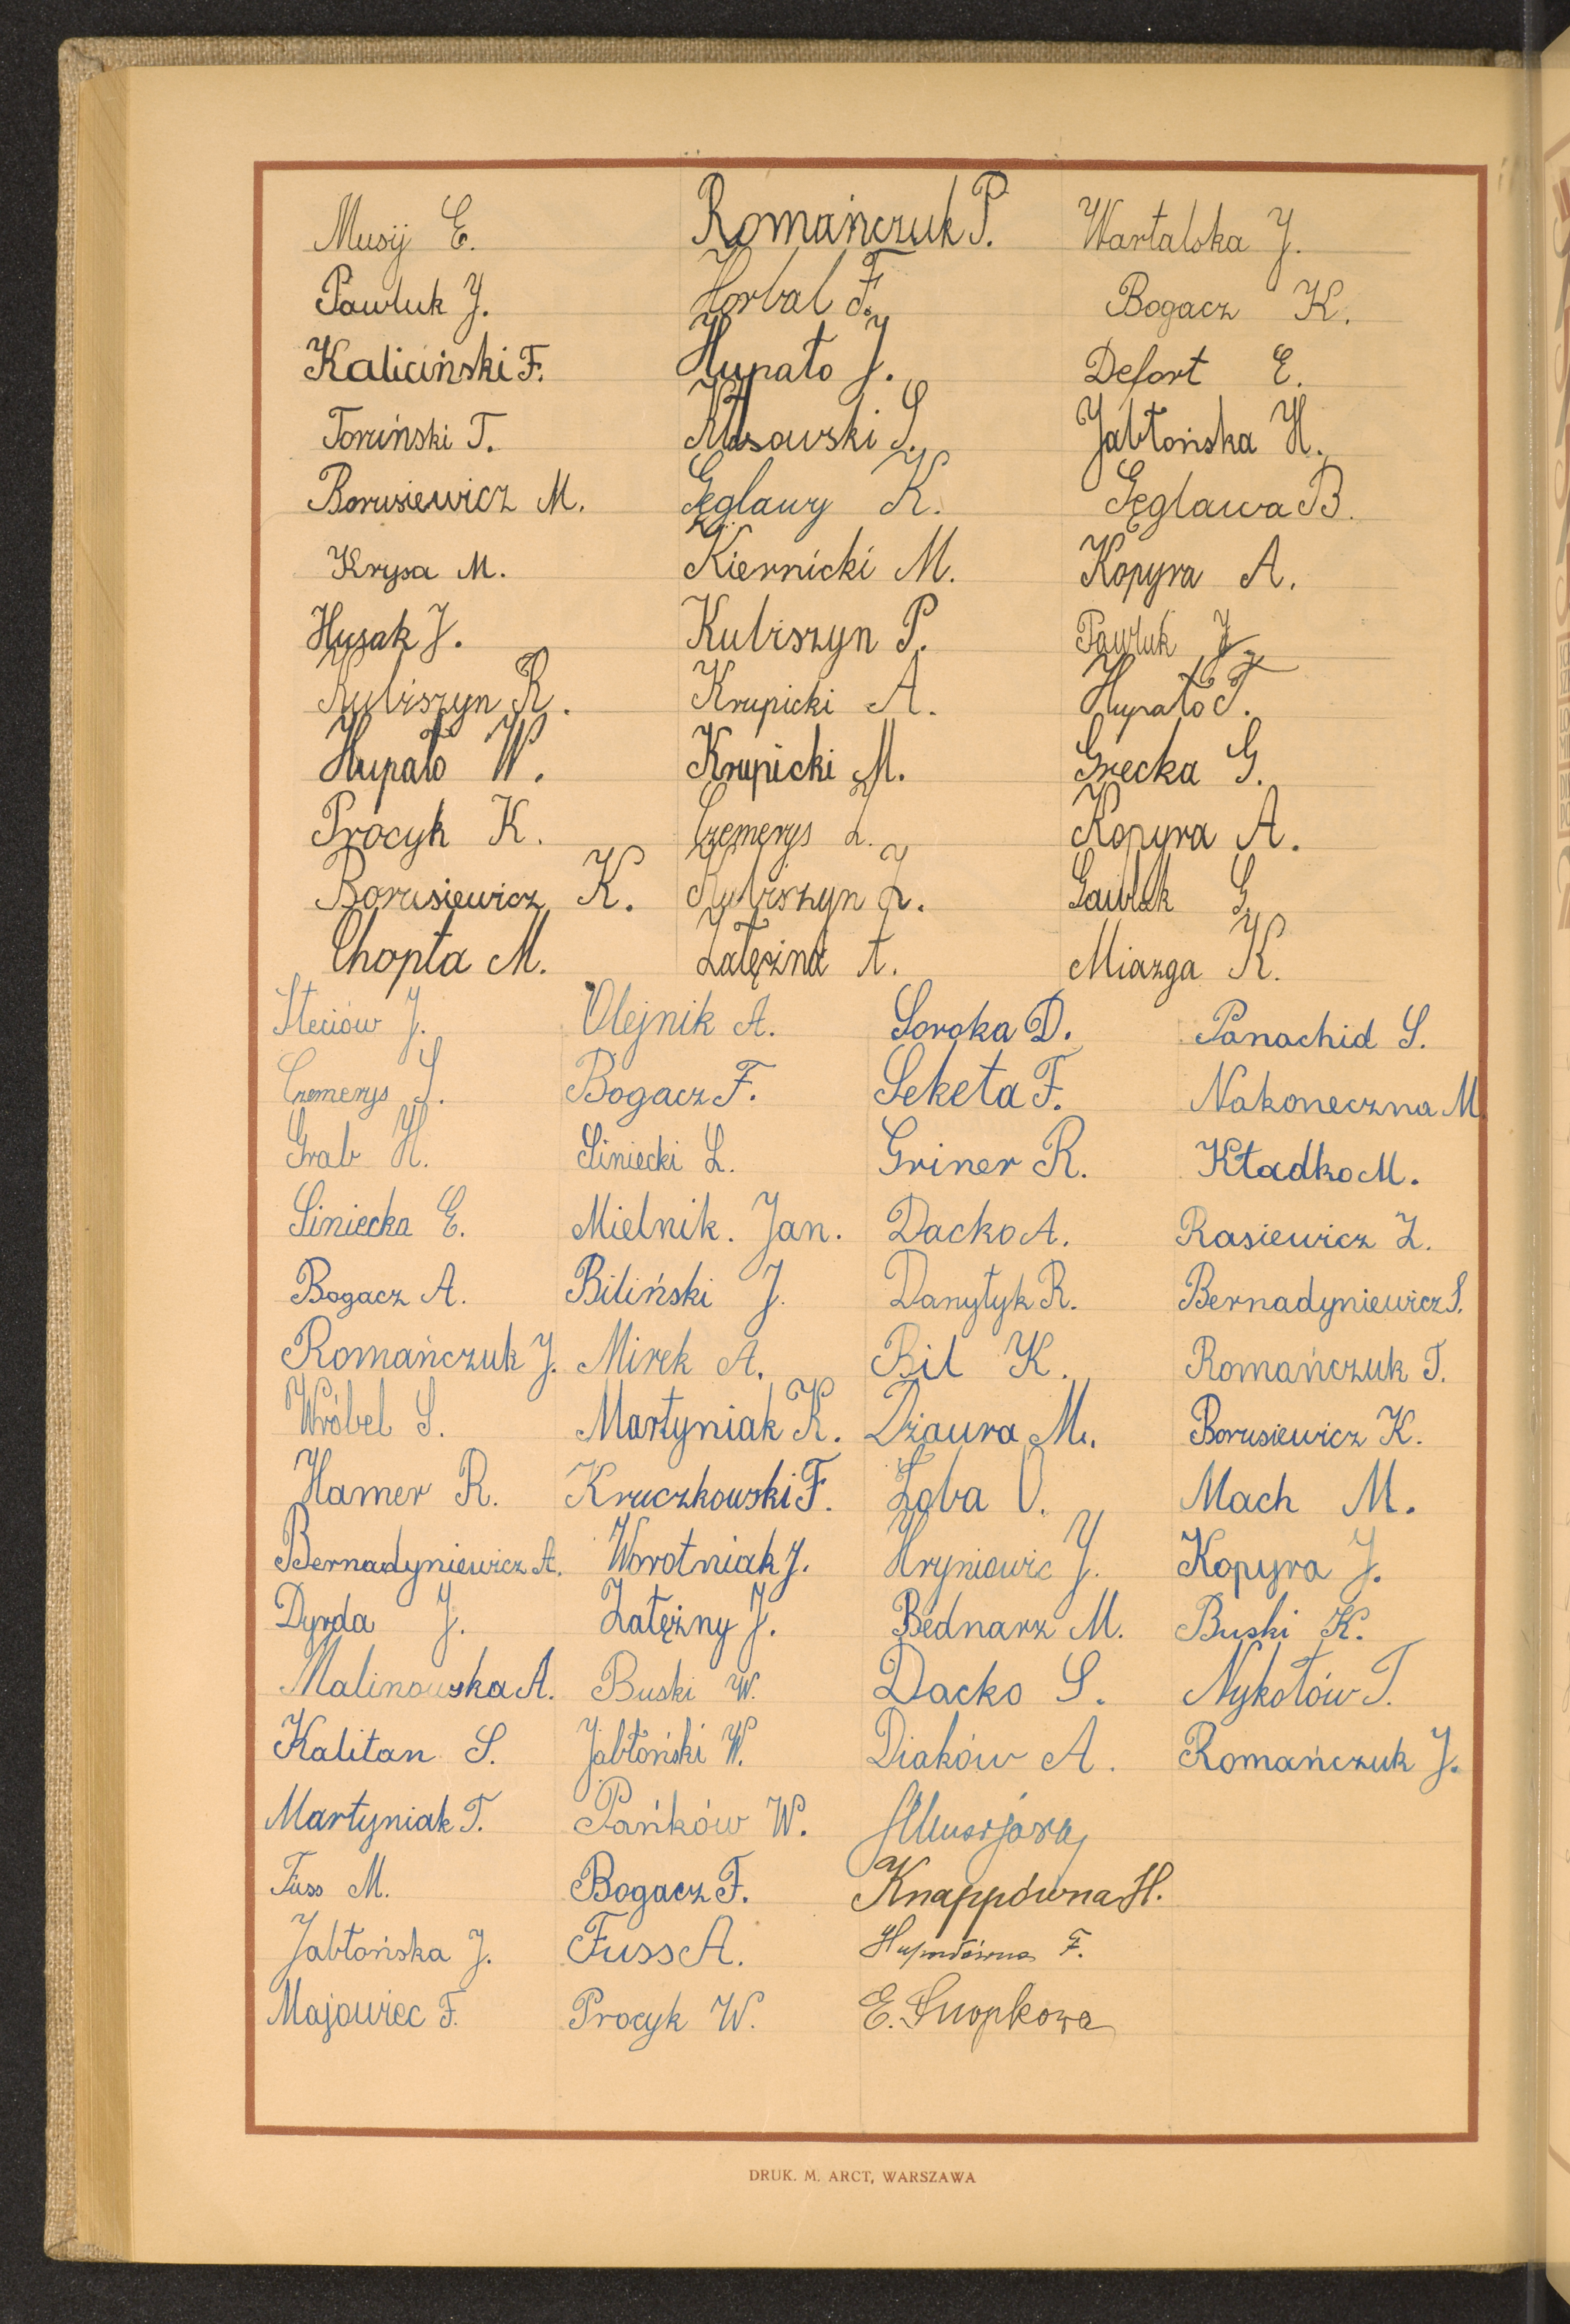 Musij E. Romańczuk P. Wartalska J.
Pawluk J. Horbal F. Bogacz K.
Kaliciński F. Hupało J. Defort E.
Toruński T. Kłosowski S. Jabłońska H.
Borusiewicz M. Gęglawy K. Gęglawa B.
Krysa M. Kiernicki M. Kopyra A.
Husak J. Kubiszyn P. Pawluk J.
Kubiszyn R. Krupicki A. Hupało T.
Hupało W. Krupicki M. Grecka G.
Procyk K. Czemerys Z. Kopyra A.
Borusiewicz K. Kubiszyn Z. Gawlik G.
Chopta M. Zatężna A. Miazga K.
Steciów J. Olejnik A. Soroka D. Panachid S.
Czemerys S. Bogacz F. Seketa F. Nakoneczna M.
Grab H. Siniecki L. Griner R. Kładko M.
Siniecka E. Mielnik. Jan. Dacko A. Rasiewicz Z.
Bogacz A. Biliński J. Danyłyk R. Bernadyniewicz S.
Romańczuk J. Mirek A. Bil K. Romańczuk T.
Wróbel S. Martyniak K. Dżaura M. Borusiewicz K.
Hamer R. Kruczkowski F. Łoba O. Mach M.
Bernadyniewicz A. Worotniak J. Hryniewic J. Kopyra J.
Dyrda J. Zatężny J. Bednarz M. Buski K.
Malinowska A. Buski W. Dacko S. Nykołów T.
Kalitan S. Jabłoński W. Diaków A. Romańczuk J.
Martyniak T. Pańków W.
Fuss M. Bogacz F. Knappówna H.
Jabłońska J. Fuss A. Hupałówna F.
Majowiec F. Procyk W. E. Snopkowa
DRUK. M. ARCT, WARSZAWA